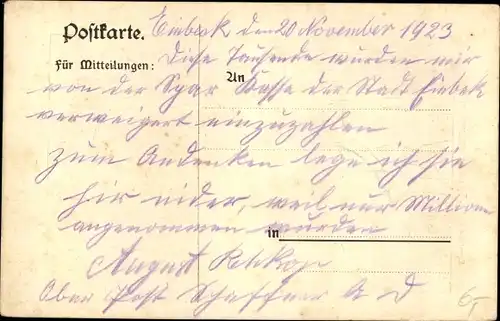 Postkarte. Einbeck den 20 November 1923
Diese Tausende wurden mir
Für Mitteilungen:
An
von der Spar Kasse der Stadt Einbek
verweigert einzuzahlen
zum Andenken lege ich sie
hir nider, weil nur Millione
angenommen wurden
in
August
Ober Post Schaffner A D
6,-